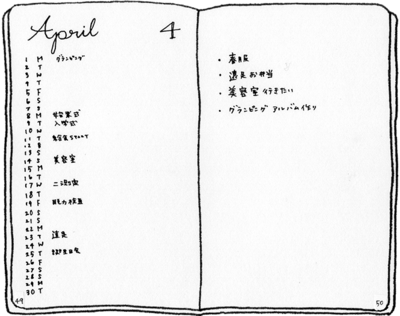 April 4
1 M グランピング
2 T
3 W
4 T
5 F
6 S
7 S
8 M 始業式
9 T 入学式
10 W
11 T 給食スタート
12 F
13 S
14 S 美容室
15 M
16 T
17 W
18 T
19 F 視力検査
20 S
21 S
22 M
23 T 遠足
24 W
25 T
26 F
27 S
28 S
29 M
30 T
49
・ 春服
・ 遠足 お弁当
・ 美容室 行きたい
・ グランピング アルバム作り
50